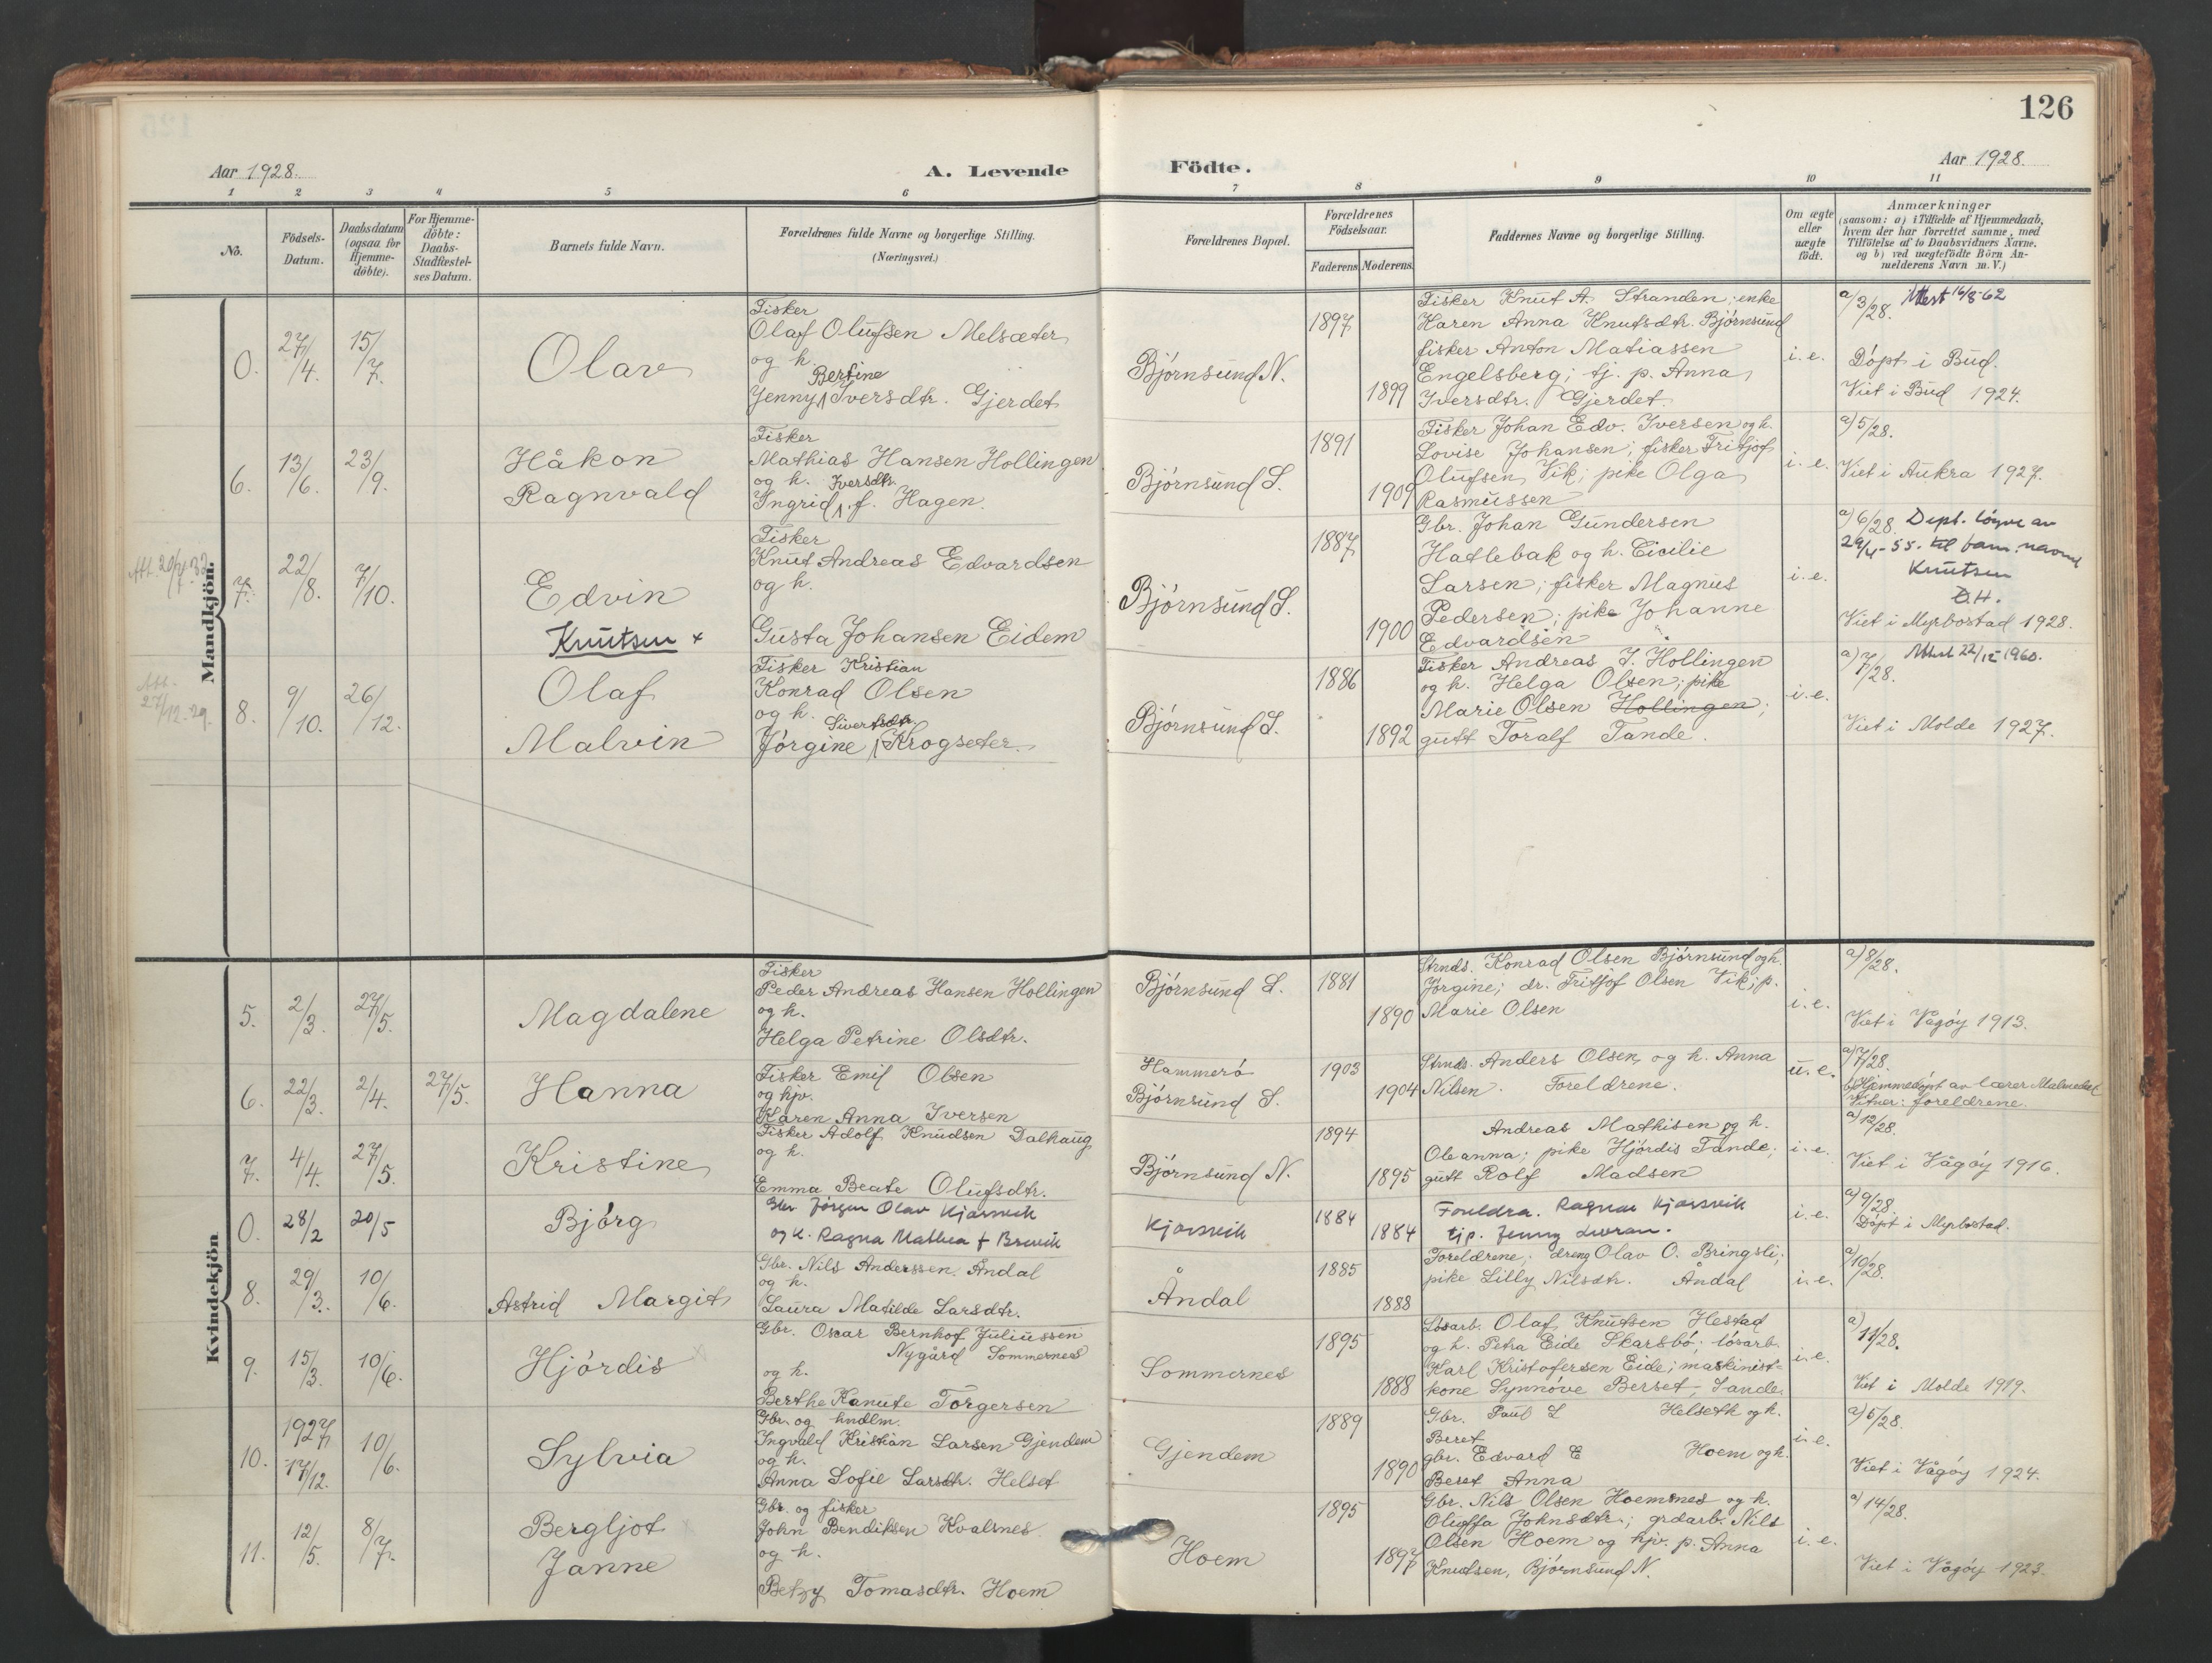 126
Aar 1928.
A. Levende
Födte.
Aar 1928.
1 2 3 4 5 6 7 8 9 10 11
No.
Födsels-
Datum.
Daabsdatum
(ogsaa for
Hjemme-
döbte).
For Hjemme-
döbte:
Daabs-
Stadfæstel-
ses Datum.
Barnets fulde Navn.
Forældrenes fulde Navne og borgerlige Stilling.
(Næringsvei.)
Forældrenes Bopæl.
Forældrenes
Födselsaar.
Faderens.
Moderens.
Faddernes Navne og borgerlige Stilling.
Om ægte
eller
uægte
födt.
Anmærkninger
(saasom: a) i Tilfælde af Hjemmedaab,
hvem der har forrettet samme, med
Tilföielse af to Daabsvidners Navne.
og b) ved uægtefödte Börn An-
melderens Navn m. V.)
Mandkjön.
0.
27/4.
15/7.
Olav
Fisker
Olaf Olufsen Melsæter
og h.
Bertine
Jenny Iversdtr. Gjerdet
Björnsund N.
1897
1899
Fisker Knut A. Stranden; enke
Karen Anna Knutsdtr. Björnsund
fisker Anton Matiassen
Engelsberg; tj. p. Anna
Iversdtr. Gjerdet.
i. e.
a/3/28. Attest 16/8-62
Döpt i Bud.
Viet i Bud 1924.
6.
13/6.
23/9.
Håkon
Ragnvald
Fisker
Mathias Hansen Hollingen
og h. Iversdtr.
Ingrid f. Hagen.
Björnsund S.
1891
1909
Fisker Johan Edv. Iversen og h.
Lovise Johansen; fisker Fritjof
Olufsen Vik; pike Olga
Rasmussen
i. e.
a) 5/28.
Viet i Aukra 1927.
Att. 20/7. 32
7.
22/8.
7/10.
Edvin
Knutsen +
Fisker
Knut Andreas Edvardsen
og h.
Gusta Johansen Eidem
Björnsund S.
1887
1900
Gbr. Johan Gundersen
Hatlebak og h. Cicilie
Larsen; fisker Magnus
Pedersen; pike Johanne
Edvardsen
i. e.
a) 6/28 Dept. löyve av
29/4-55. til fam. navnet
Knutsen
O.H.
Viet i Myrbostad 1928.
Att.
27/12-29.
8.
9/10.
26/12.
Olaf
Malvin
Fisker Kristian
Konrad Olsen
og h. Sivertsdtr.
Jörgine Krogseter.
Björnsund S.
1886
1892
Fisker Andreas J. Hollingen
og h. Helga Olsen; pike
Marie Olsen Hollingen;
gutt Toralf Tande.
i. e.
a) 7/28. Attest 22/12 1960.
Viet i Molde 1927.
Kvindekjön
5.
2/3.
27/5.
Magdalene
Fisker
Peder Andreas Hansen Hollingen
og h.
Helga Petrine Olsdtr.
Björnsund S.
1881
1890
Strnds. Konrad Olsen Björnsund og h.
Jörgine; dr. Fritjof Olsen Vik; p.
Marie Olsen
i. e.
a) 8/28.
Viet i Vågöy 1913.
6.
22/3.
2/4.
27/5.
Hanna
Fisker Emil Olsen
og hp.
Karen Anna Iversen
Hammerö
Björnsund S.
1903
1904
Strnds. Anders Olsen og h. Anna
Nilsen. Foreldrene.
u. e.
a) 7/28.
b) Hjemmedöpt av lærer Malmedal
Vitner: foreldrene.
7.
4/4.
27/5.
Kristine
Fisker Adolf Knudsen Dalhaug
og h.
Emma Beate Olufsdtr.
Björnsund N.
1894
1895
Andreas Mathisen og h.
Oleanna; pike Hjördis Tande;
gutt Rolf Madsen
i. e.
a) 12/28.
Viet i Vågöy 1916.
0.
28/2
20/5
Björg
Gbr. Jörgen Olav Kjörsvik
og h. Ragna Mathea f Brevik
Kjörsvik
1884
1884
Foreldra. Ragnar Kjörsvik
tjp. Jenny
i. e.
a) 9/28.
Döpt i Myrbostad.
8.
29/3.
10/6.
Astrid Margit
Gbr. Nils Anderssen Åndal
og h.
Laura Matilde Larsdtr.
Åndal
1885
1888
Foreldrene; dreng Olav O. Bringsli;
pike Lilly Nilsdtr. Åndal
i. e.
a) 10/28.
9.
15/3.
10/6.
Hjördis
Gbr. Oscar Bernhof Juliussen
Nygård Sommernes
og h.
Berthe Kanute Torgersen
Sommernes
1895
1888
Lösarb. Olaf Knutsen Hestad
og h. Petra Eide Skarsbö; lösarb.
Karl Kristofersen Eide; maskinist-
kone Synnöve Berset, Sande.
i. e.
a) 11/28.
Viet i Molde 1919.
10.
1927
17/12.
10/6.
Sylvia
Gbr. og hndlm.
Ingvald Kristian Larsen Gjendem
og h.
Anna Sofie Larsdtr. Helset
Gjendem
1889
1890
Gbr. Paul L Helseth og h.
Beret
gbr. Edvard E Hoem og h.
Beret Anna
i. e.
a) 5/28.
Viet i Vågöy 1924.
11.
12/5.
8/7.
Bergljot
Janne
Gbr. og fisker
John Bendiksen Kvalsnes
og h.
Betzy Tomasdtr. Hoem
Hoem
1895
1897
Gbr. Nils Olsen Hoemsnes og h.
Oluffa Johnsdtr.; grdarb. Nils
Olsen Hoem og hp. p. Anna
Knudsen, Björnsund N.
i. e.
a) 14/28.
Viet i Vågöy 1923.